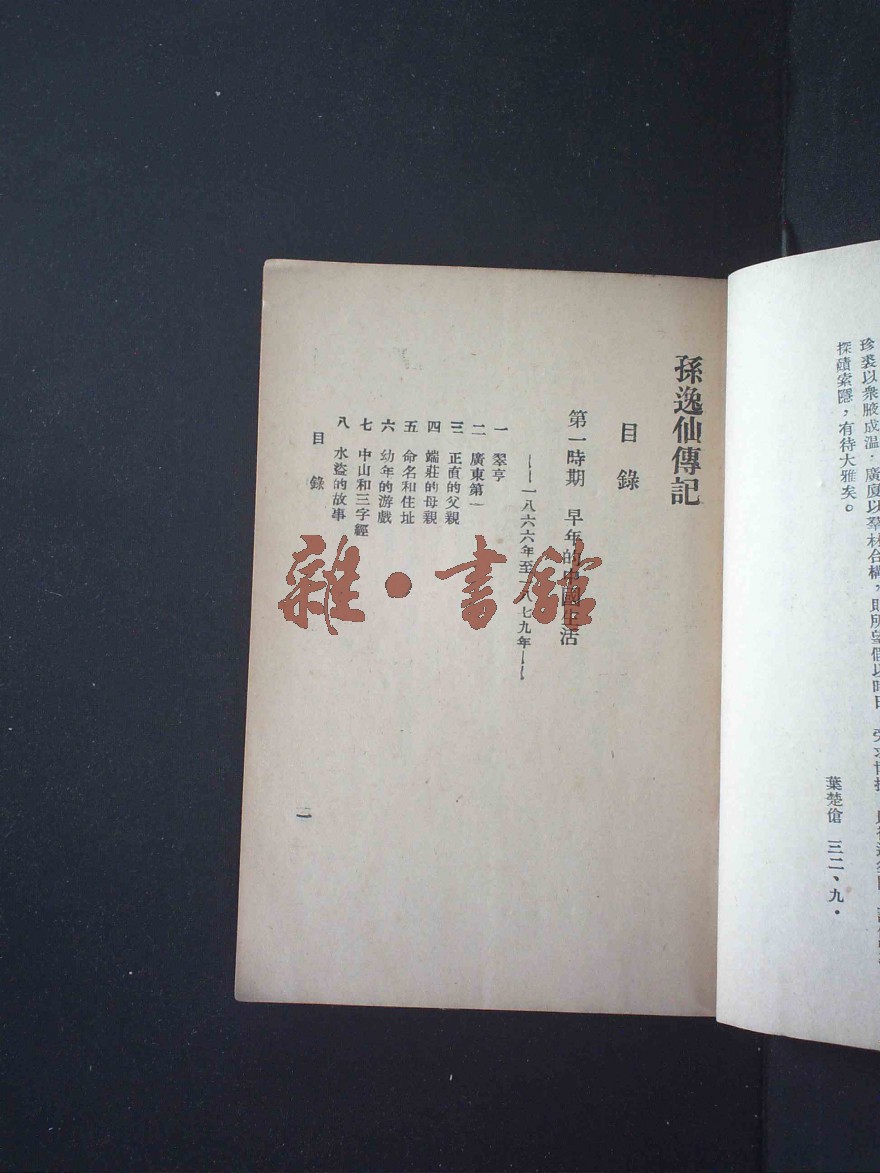 珍裘以衆腋成温，廣廈以羣材合構，
探賾索隱，有待大雅矣。
葉楚傖 三二、九．
孫逸仙傳記
目錄
第一時期 早年的中國生活
——一八六六年至一八七九年——
一 翠亨
二 廣東第一
三 正直的父親
四 端莊的母親
五 命名和住址
六 幼年的游戲
七 中山和三字經
八 水盜的故事
目錄
雜·書館